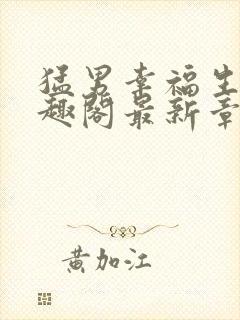 猛男幸福生
趣阁最新章
黄加江